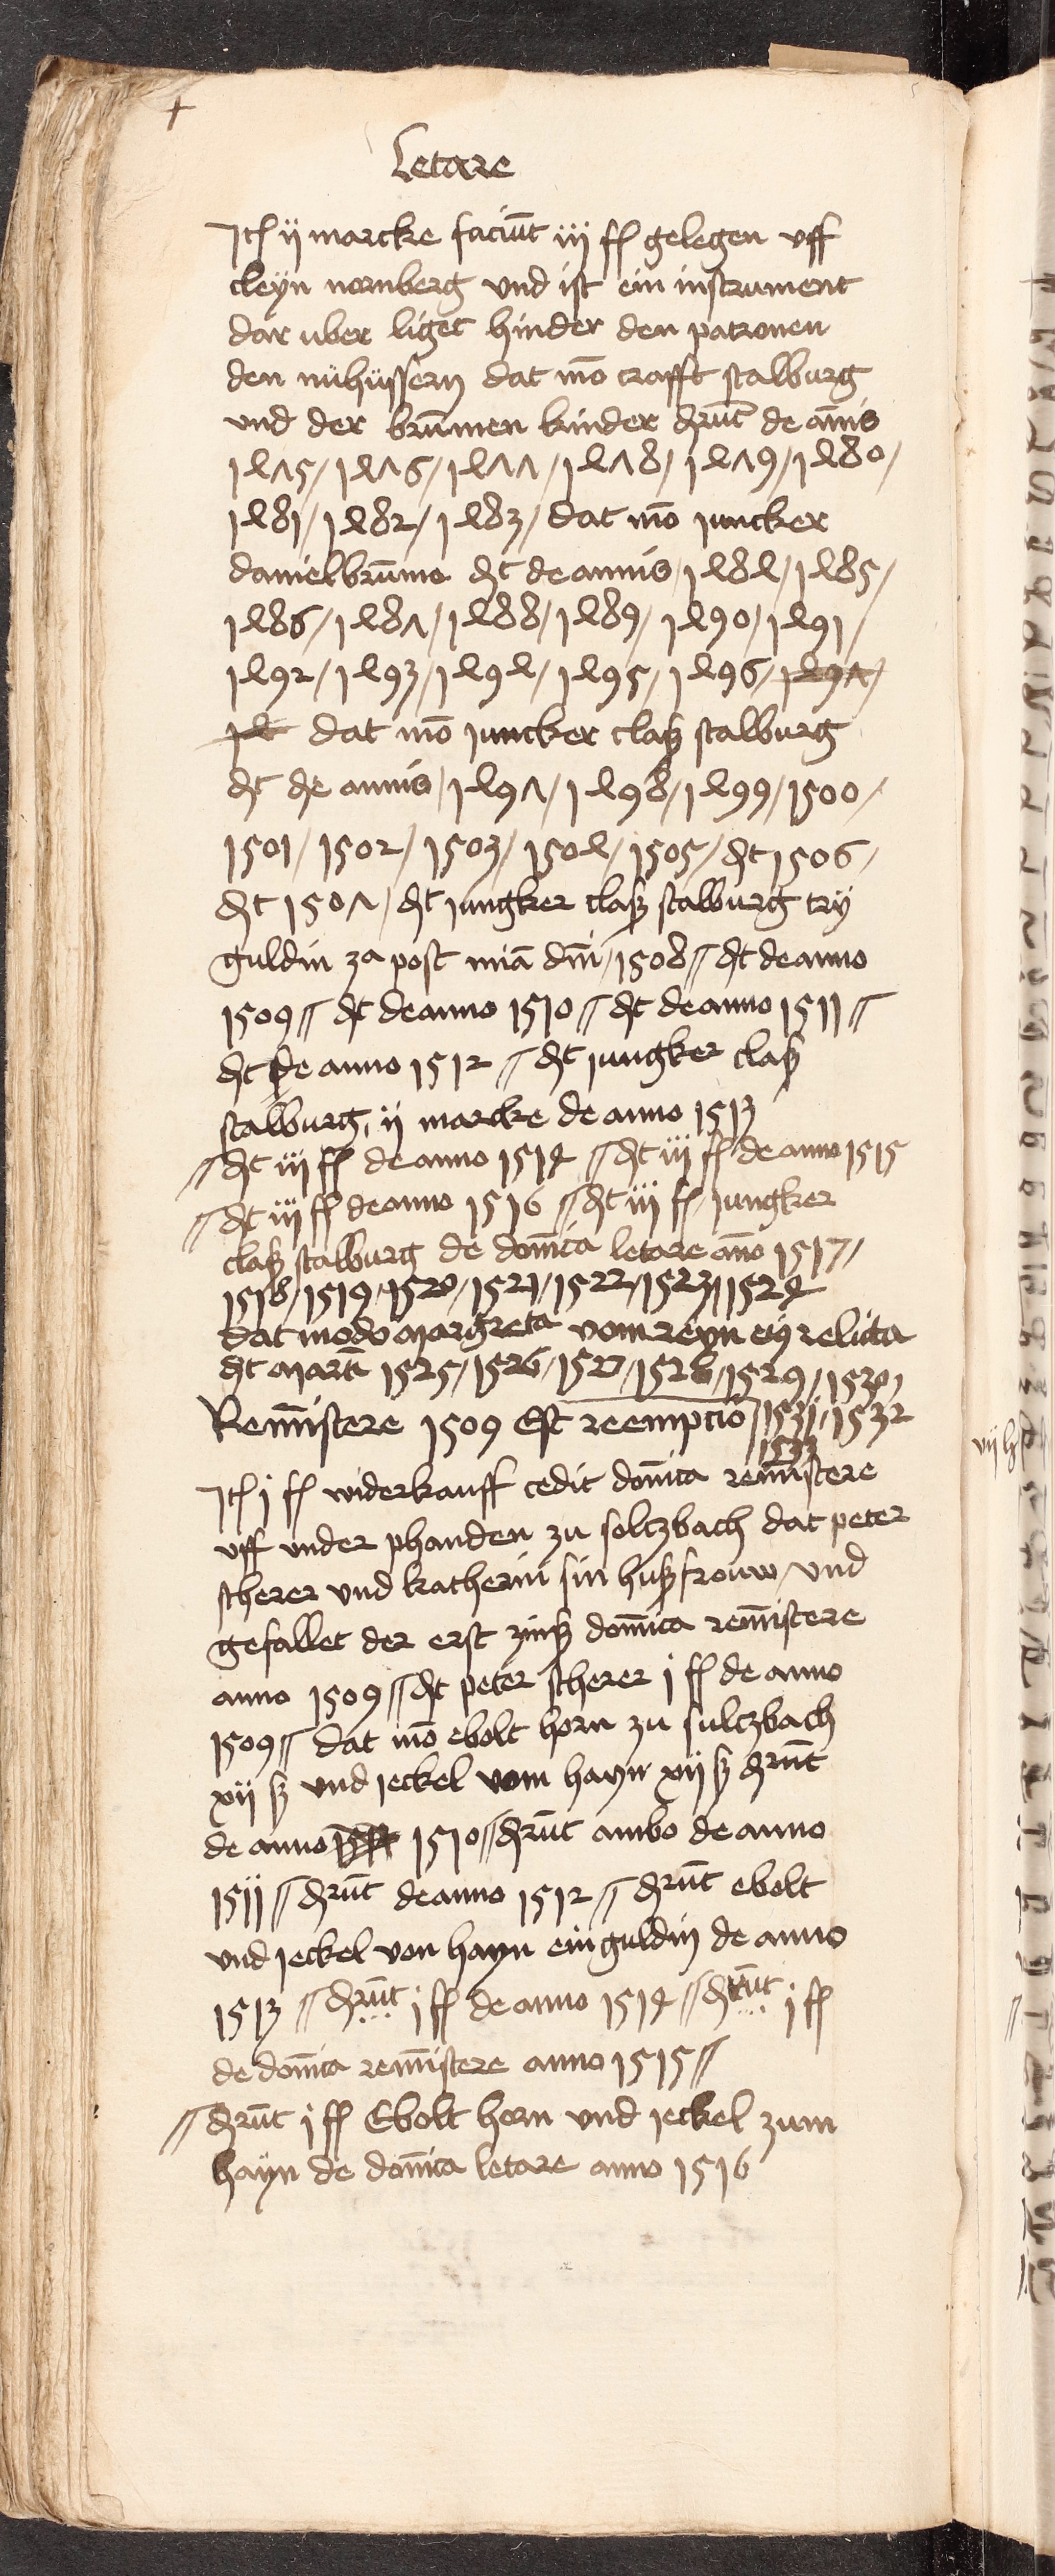 Letare
Itē ij marcke faciūt iij fl gelegen vff
cleyn nornberg vnd ist ein instrument
dar vber liget hinder den patronen
den nühüssern dat mō crafft stalburg
vnd der brūmen kinder dᷓrūt de an̄is
1475/ 1476/ 1477/ 1478/ 1479/ 1480/
1481/ 1482/ 1483/ dat mō juncker
daniel brūme dt de annis/ 1484/ 1485/
1486/ 1487/ 1488/ 1489/ 1490/ 1491/
1492/ 1493/ 1494/ 1495/ 1496/ 1497/
14 dat mō juncker claß stalburg
dt de annis/ 1497/ 1498/ 1499/ 1500/
1501/ 1502/ 1503/ 1504/ 1505/ dt 1506/
dt 1507/ dt jungker claß stalburg try
guldin 3a post miā dn̄i/ 1508// dt de anno
1509// dt de anno 1510// dt de anno 1511//
dt de anno 1512 // dt jungker claß
stalburg ij marcke de anno 1513
// dt iij fl de anno 1514 // dt iij fl de anno 1515
// dt iij fl de anno 1516 // dt iij fl jungker
claß stalburg de domīca letare an̄o 1517/
1518/ 1519/ 1520/ 1521/ 1522/ 1523/ 1524
dat modo Margreta vom reyn eiꝰ relicta
dt 1525/ 1526/ 1527/ 1528/ 1529/ 1530/
Remīscere 1509 Est reempcio /1531/ 1532
1533
Itē j fl widerkauff cedit domīca remīscere
vff vnder phanden zu soltzbach dat peter
scherer vnd katherin sin hußfrouw/ vnd
gefallet der erst zinß domīca remīscere
anno 1509// dt peter scherer j fl de anno
1509// dat mō ebolt horn zu sultzbach
xij ß vnd jeckel vom hayn xij ß dᷓrūt
de anno 1510// dᷓrūt ambo de anno
1511// dᷓrūt de anno 1512 // dᷓrūt ebolt
vnd jeckel von hayn ein guldin de anno
1513 // dᷓrūt j fl de anno 1514 // dᷓrūt j fl
de domīca remīscere anno 1515//
// dᷓrūt j fl Ebolt horn vnd jeckel zum
hayn de domīca letare anno 1516